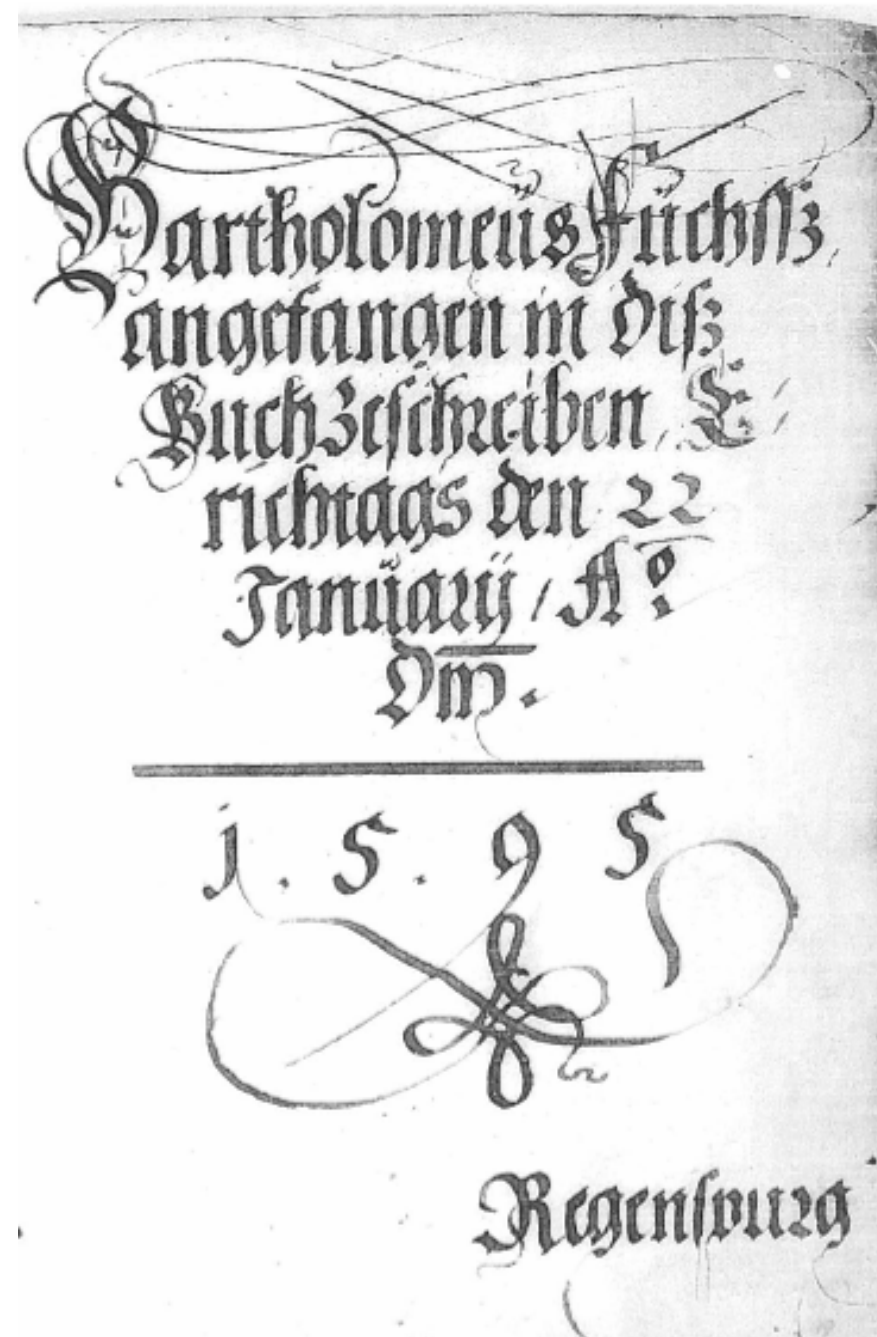 Bartholomeüs Füchssz,
angefangen in disz
Buch Zeschreiben, E/
richtags den 22
Janüarij / Aº
Dm̄.
1 . 5 . 9 5
Regenspurg